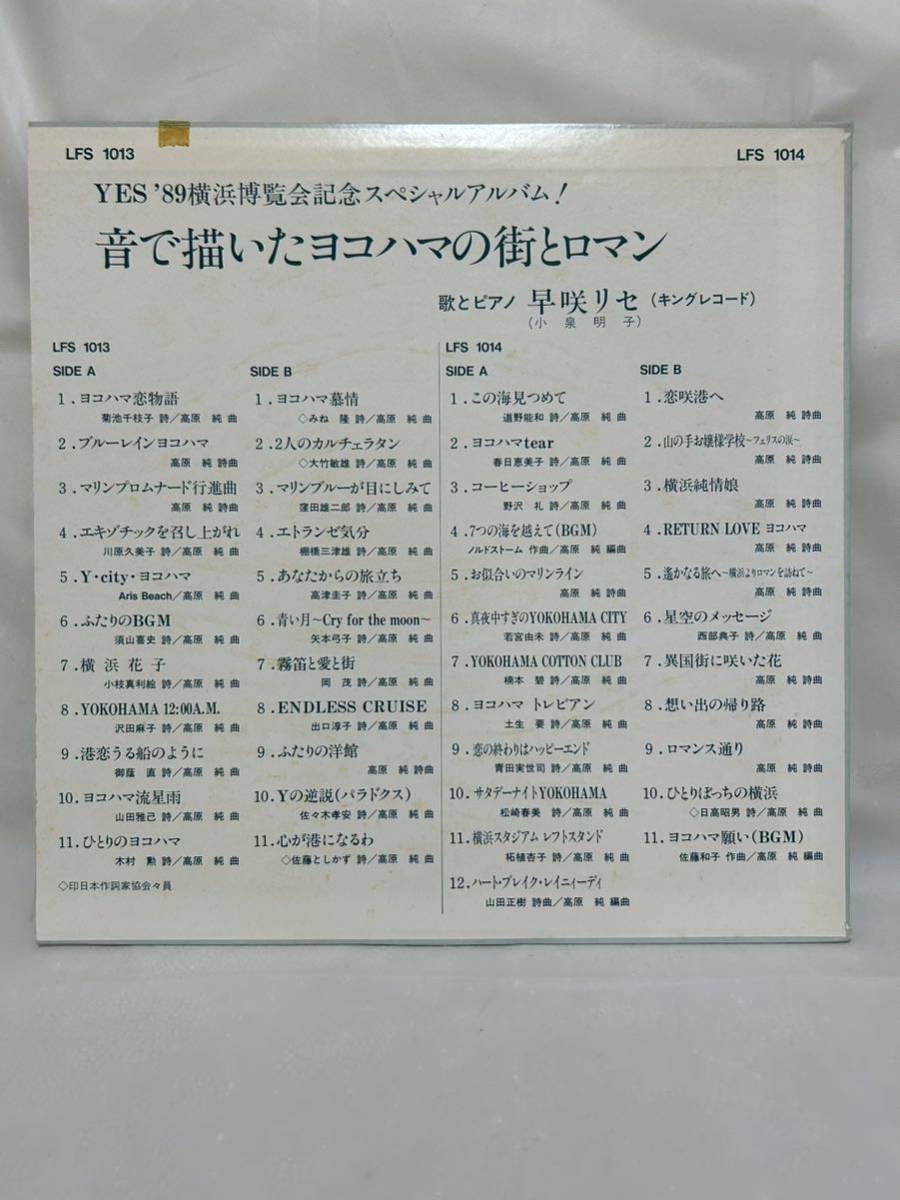 LFS 1013
LFS 1014
YES '89横浜博覧会記念スペシャルアルバム!
音で描いたヨコハマの街とロマン
歌とピアノ 早咲リセ (キングレコード)
(小泉明子)
LFS 1013
SIDE A
1.ヨコハマ恋物語
菊池千枝子 詩/高原 純 曲
2.ブルーレインヨコハマ
高原 純 詩曲
3.マリンプロムナード行進曲
高原 純 詩曲
4.エキゾチックを召し上がれ
川原久美子 詩/高原 純 曲
5.Y・city・ヨコハマ
Aris Beach/高原 純 曲
6.ふたりのBGM
須山喜史 詩/高原 純 曲
7.横浜花子
小枝真利絵 詩/高原 純 曲
8.YOKOHAMA 12:00A.M.
沢田麻子 詩/高原 純 曲
9.港恋うる船のように
御蔭 直 詩/高原 純 曲
10.ヨコハマ流星雨
山田雅己 詩/高原 純 曲
11.ひとりのヨコハマ
木村 勲 詩/高原 純 曲
◇印日本作詞家協会々員
SIDE B
1.ヨコハマ慕情
◇みね 隆 詩/高原 純 曲
2.2人のカルチェラタン
◇大竹敏雄 詩/高原 純 曲
3.マリンブルーが目にしみて
窪田雄二郎 詩/高原 純 曲
4.エトランゼ気分
棚橋三津雄 詩/高原 純 曲
5.あなたからの旅立ち
高津圭子 詩/高原 純 曲
6.青い月~Cry for the moon~
矢本弓子 詩/高原 純 曲
7.霧笛と愛と街
岡 茂 詩/高原 純 曲
8.ENDLESS CRUISE
出口淳子 詩/高原 純 曲
9.ふたりの洋館
高原 純 詩曲
10.Yの逆説(パラドクス)
佐々木孝安 詩/高原 純 曲
11.心が港になるわ
◇佐藤としかず 詩/高原 純 曲
LFS 1014
SIDE A
1.この海見つめて
道野能和 詩/高原 純 曲
2.ヨコハマtear
春日恵美子 詩/高原 純 曲
3.コーヒーショップ
野沢 礼 詩/高原 純 曲
4.7つの海を越えて(BGM)
ノルドストーム 作曲/高原 純 編曲
5.お似合いのマリンライン
高原 純 詩曲
6.真夜中すぎのYOKOHAMA CITY
若宮由未 詩/高原 純 曲
7.YOKOHAMA COTTON CLUB
楠本 碧 詩/高原 純 曲
8.ヨコハマ トレビアン
土生 要 詩/高原 純 曲
9.恋の終わりはハッピーエンド
青田実世司 詩/高原 純 曲
10.サタデーナイトYOKOHAMA
松崎春美 詩/高原 純 曲
11.横浜スタジアム レフトスタンド
柘植杏子 詩/高原 純 曲
12.ハート・ブレイク・レイニィーディ
山田正樹 詩曲/高原 純 編曲
SIDE B
1.恋咲港へ
高原 純 詩曲
2.山の手お嬢様学校~フェリスの涙~
高原 純 詩曲
3.横浜純情娘
高原 純 詩曲
4.RETURN LOVE ヨコハマ
高原 純 詩曲
5.遙かなる旅へ~横浜よりロマンを訪ねて~
高原 純 詩曲
6.星空のメッセージ
西部典子 詩/高原 純 曲
7.異国街に咲いた花
高原 純 詩曲
8.想い出の帰り路
高原 純 詩曲
9.ロマンス通り
高原 純 詩曲
10.ひとりぼっちの横浜
◇日高昭男 詩/高原 純 曲
11.ヨコハマ願い(BGM)
佐藤和子 作曲/高原 純 編曲